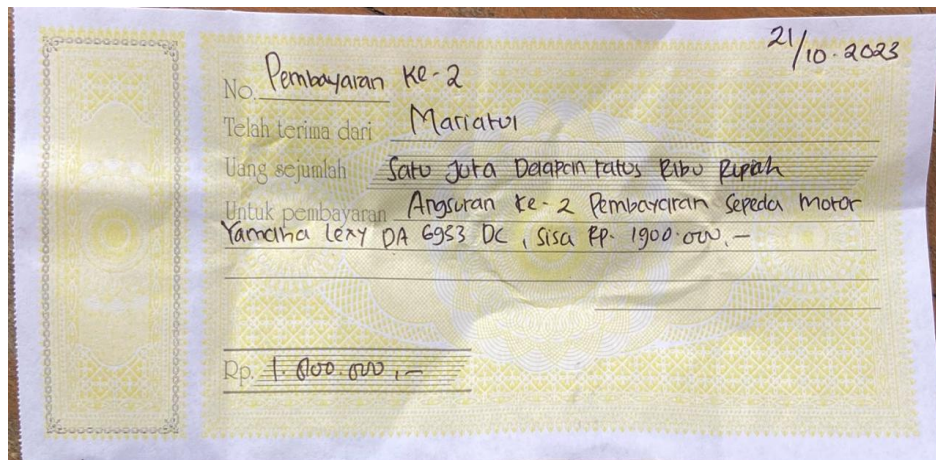 21/10.2023
No. Pembayaran Ke-2
Telah terima dari Mariatul
Uang sejumlah Satu Juta Delapan ratus Ribu Rupiah
Untuk pembayaran Angsuran Ke-2 Pembayaran Sepeda Motor
Yamaha Lexy DA 6953 DC, Sisa Rp. 1900.000,-
Rp. 1.800.000,-